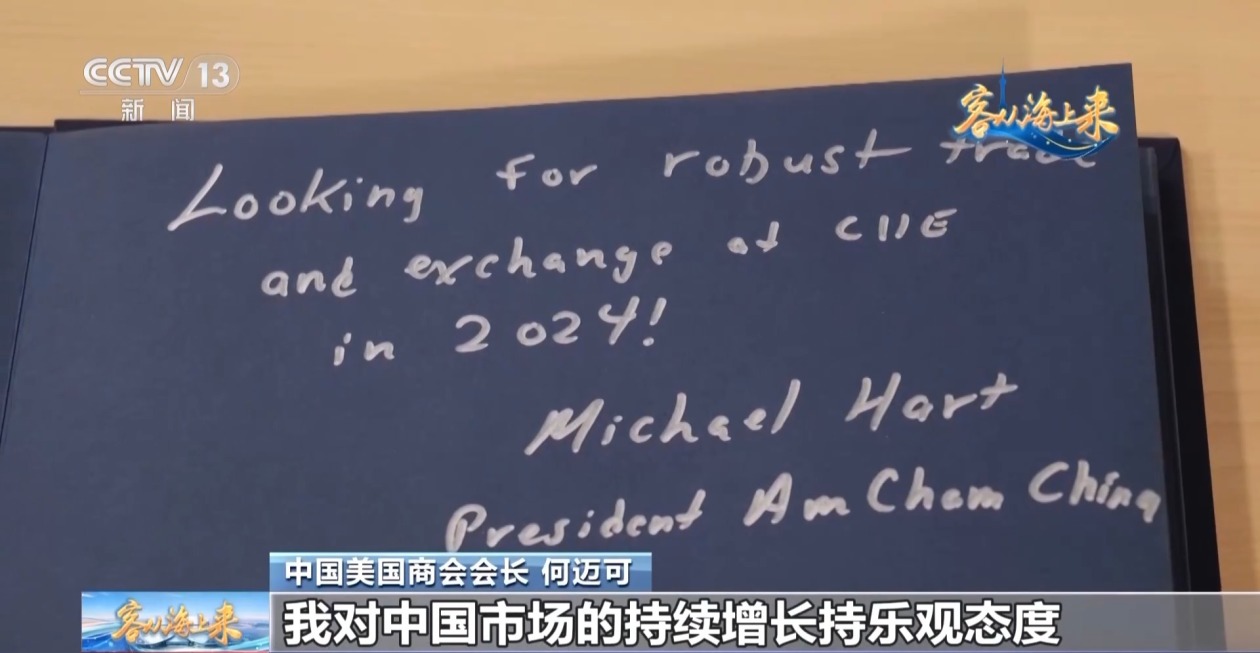 CCTV 13
新闻
客从海上来
Looking for robust trade
and exchange at CIIE
in 2024!
Michael Hart
President AmCham China
中国美国商会会长 何迈可
客从海上来
我对中国市场的持续增长持乐观态度